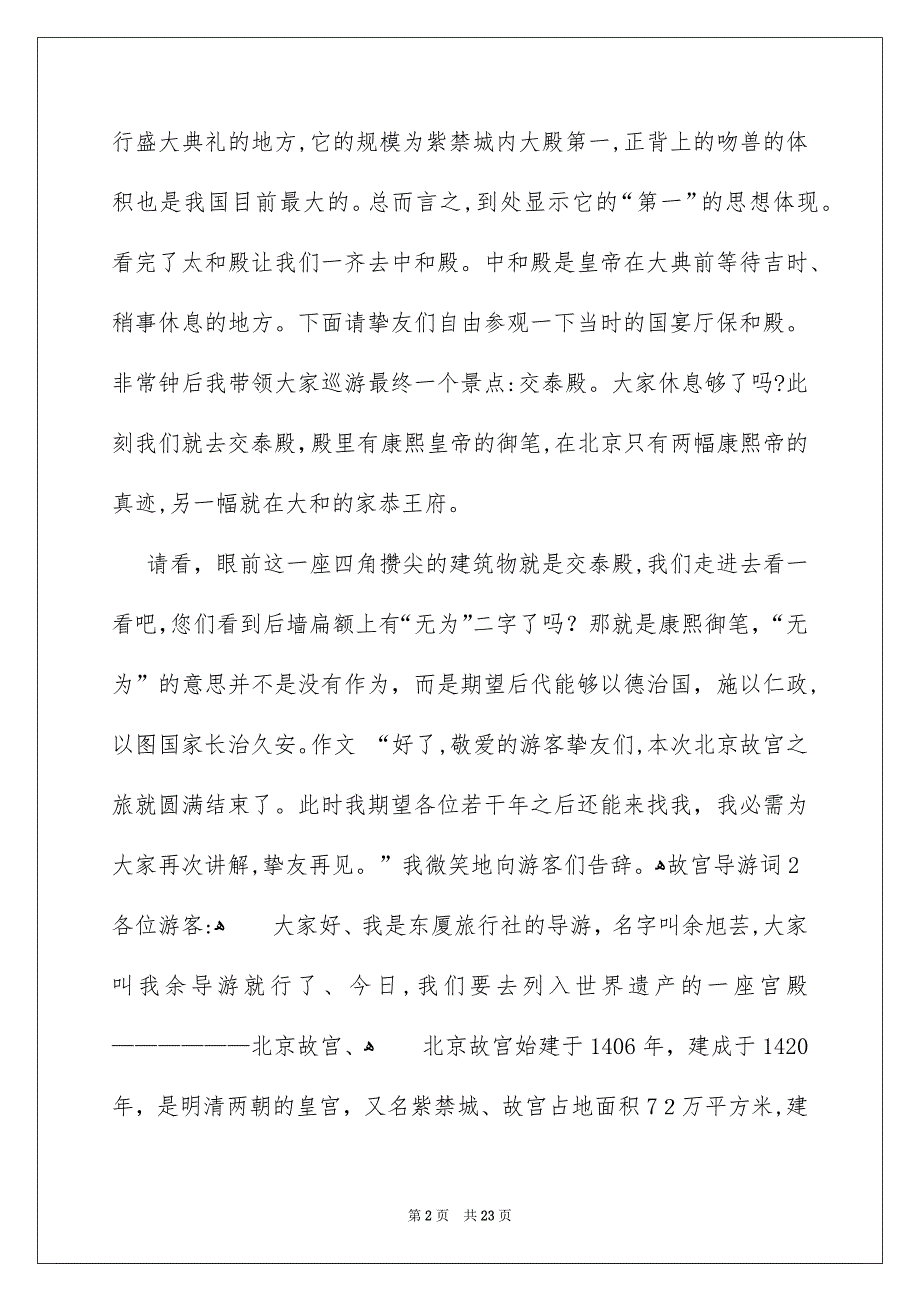 行盛大典礼的地方,它的规模为紫禁城内大殿第一,正背上的吻兽的体
积也是我国目前最大的。总而言之,到处显示它的“第一”的思想体现。
看完了太和殿让我们一齐去中和殿。中和殿是皇帝在大典前等待吉时、
稍事休息的地方。下面请挚友们自由参观一下当时的国宴厅保和殿。
非常钟后我带领大家巡游最终一个景点:交泰殿。大家休息够了吗?此
刻我们就去交泰殿,殿里有康熙皇帝的御笔,在北京只有两幅康熙帝的
真迹,另一幅就在大和的家恭王府。
请看，眼前这一座四角攒尖的建筑物就是交泰殿,我们走进去看一
看吧,您们看到后墙扁额上有“无为”二字了吗？那就是康熙御笔，“无
为”的意思并不是没有作为，而是期望后代能够以德治国，施以仁政,
以图国家长治久安。作文 “好了,敬爱的游客挚友们,本次北京故宫之
旅就圆满结束了。此时我期望各位若干年之后还能来找我，我必需为
大家再次讲解,挚友再见。”我微笑地向游客们告辞。ﻫ故宫导游词2
各位游客:ﻫ 大家好、我是东厦旅行社的导游，名字叫余旭芸,大家
叫我余导游就行了、今日,我们要去列入世界遗产的一座宫殿
——————北京故宫、ﻫ 北京故宫始建于1406年，建成于1420
年，是明清两朝的皇宫，又名紫禁城、故宫占地面积72万平方米,建
第2页 共23页